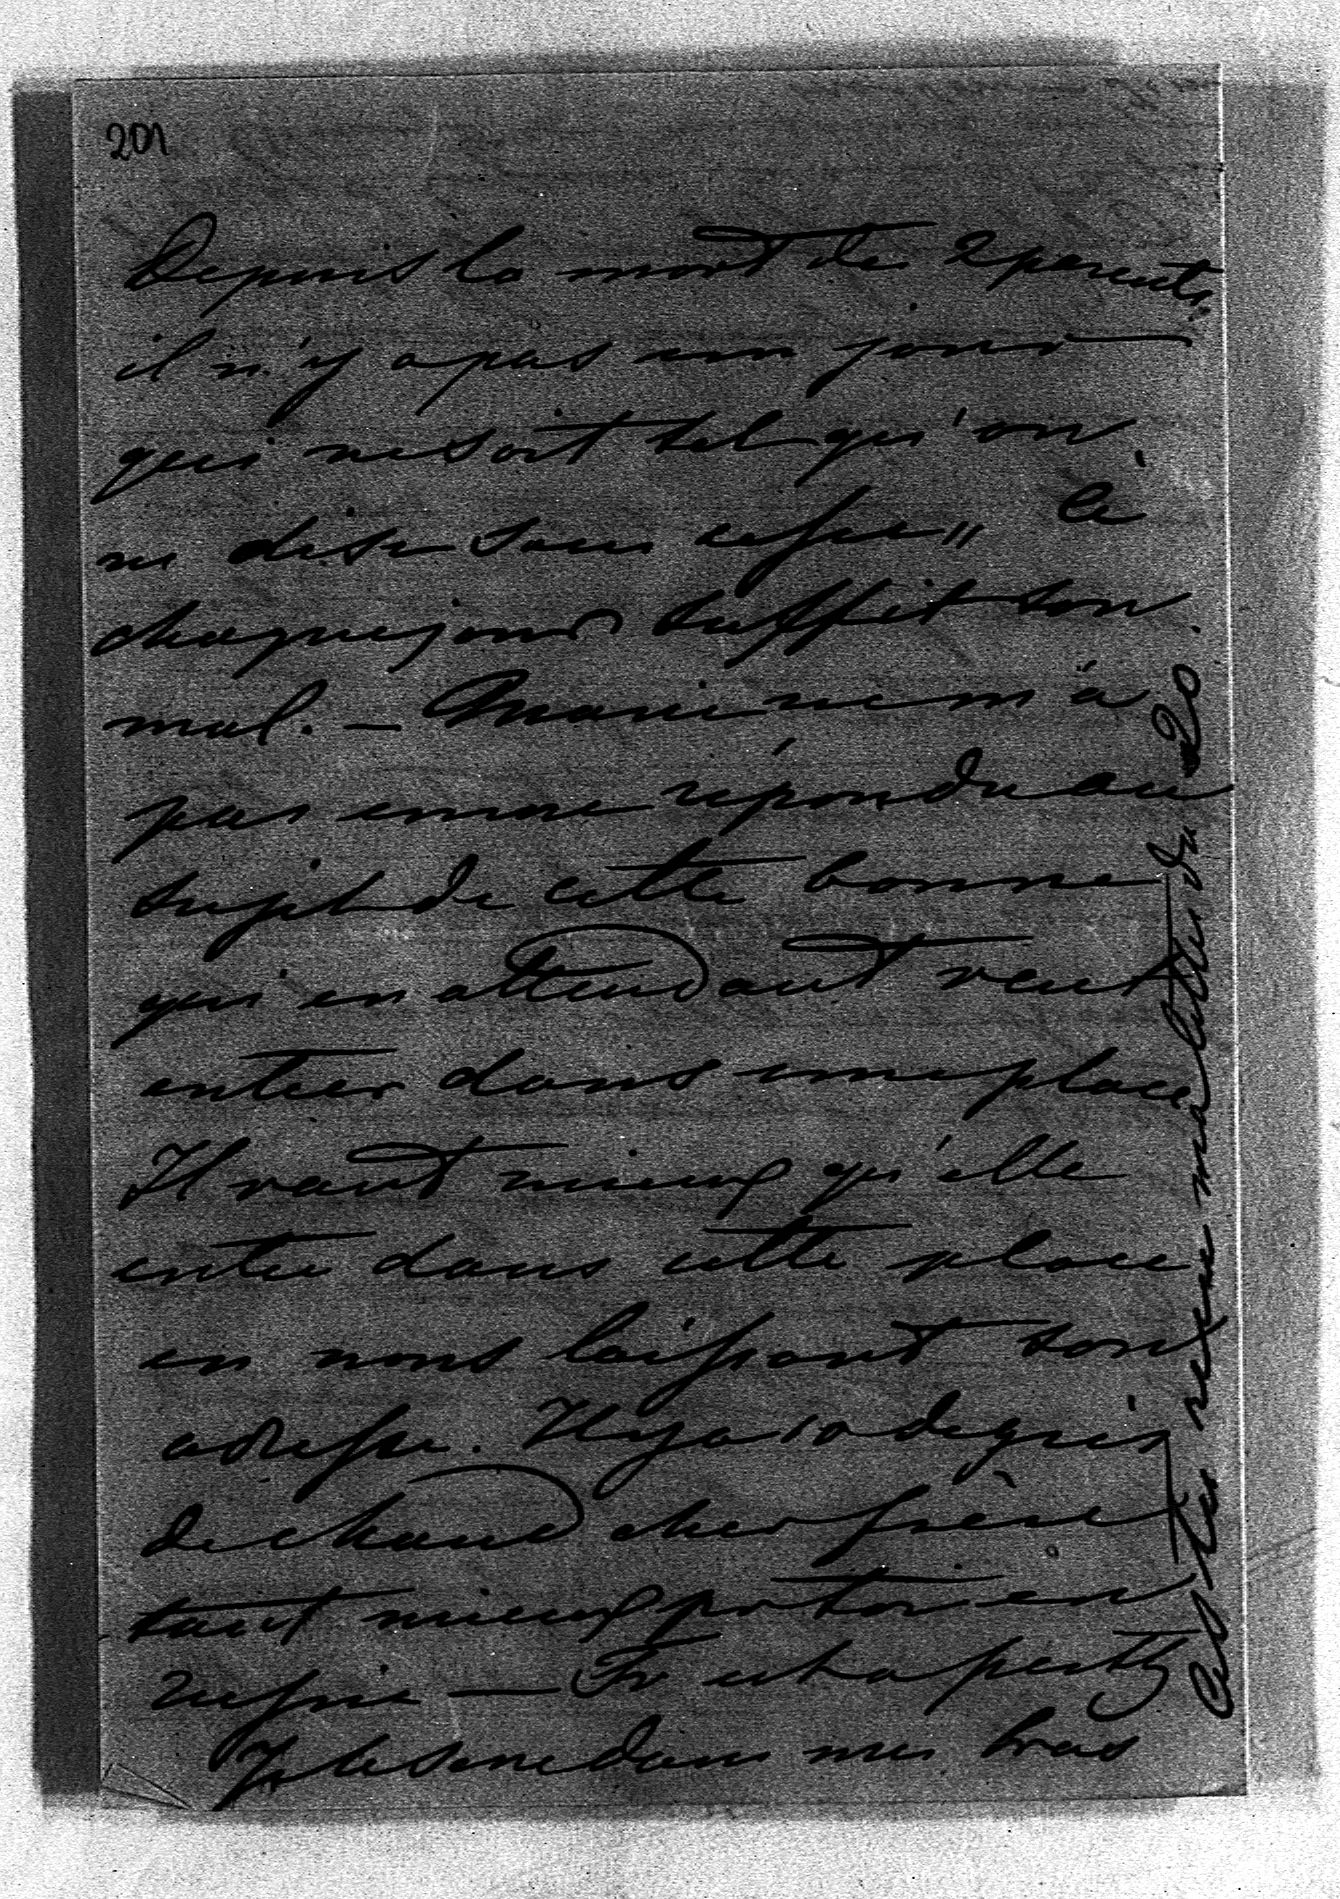 201
Depuis la mort de 2 parents
il n'y a pas un jour
qui ne soit tel qu'on
ne dise sans cesse „ à
chaque jour suffit son
mal. — Marie ne m'a
pas encore répondu au
sujet de cette bonne
qui en attendant veut
entrer dans une place
Il vaut mieux qu'elle
entre dans cette place
en nous laissant son
adresse. Il y a 10 degrés
de chaud cher frère
tant mieux
russie — Fr est à
Je te serre dans mes bras
As tu reçu ma lettre du 20